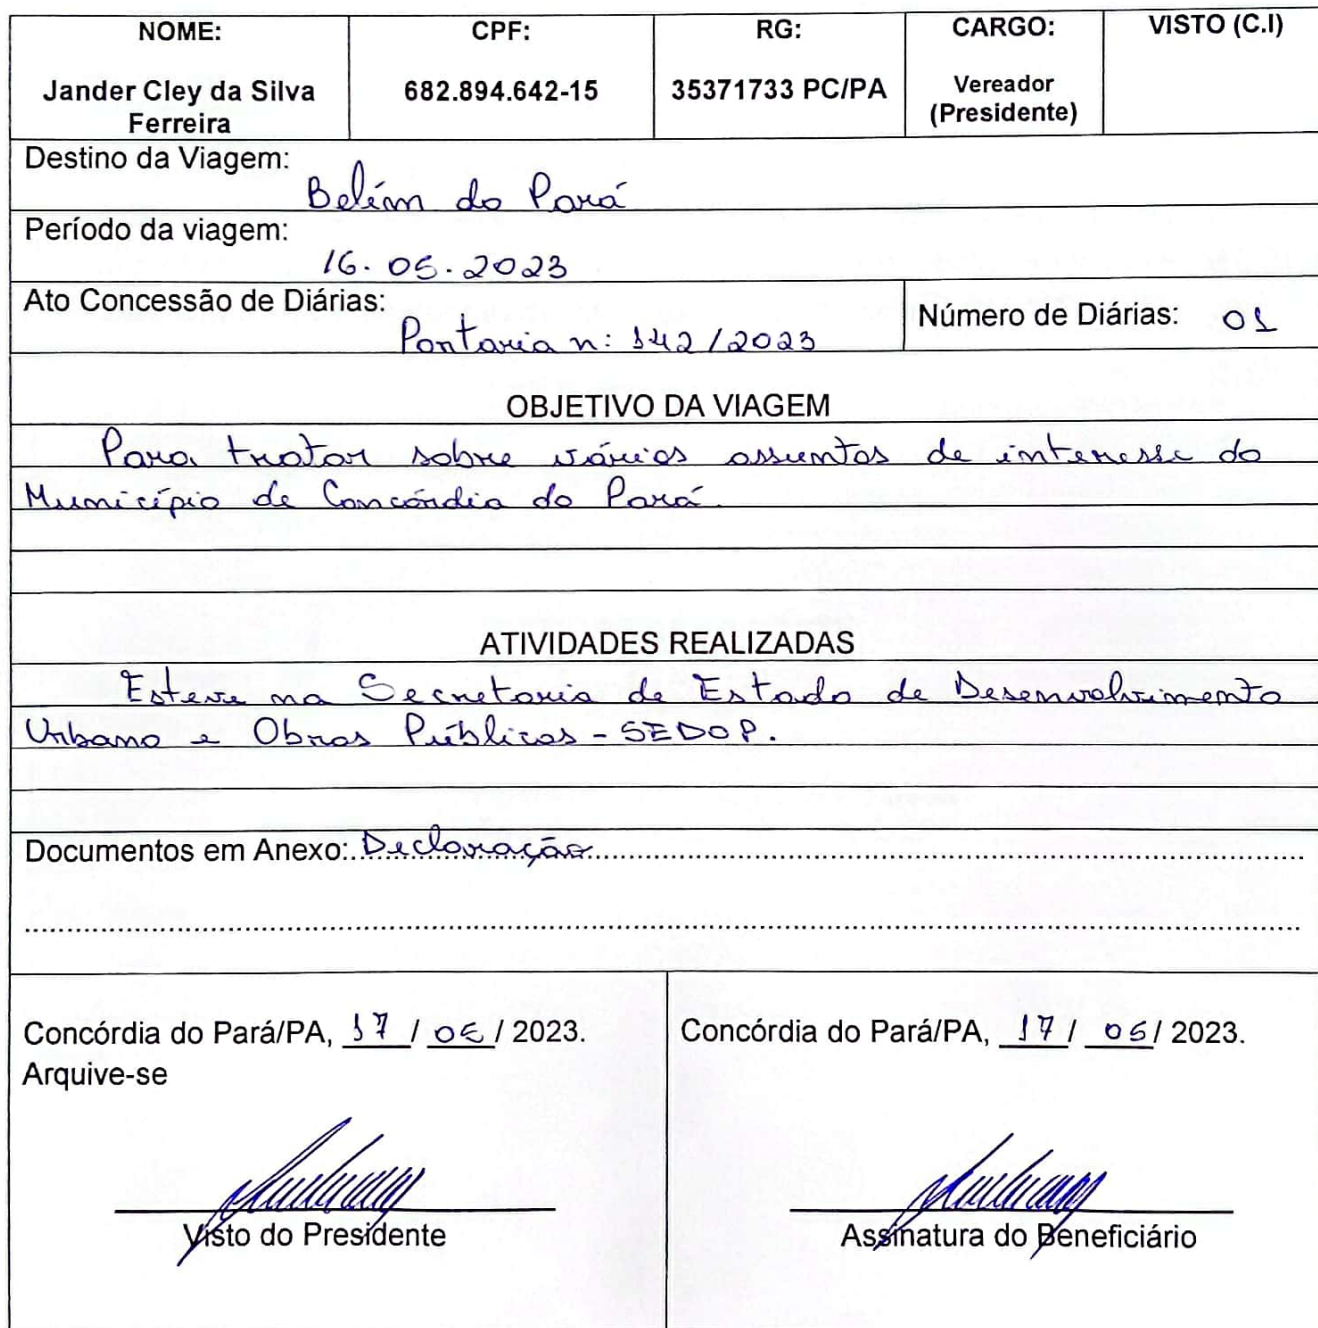 NOME: CPF: RG: CARGO: VISTO (C.I)
Jander Cley da Silva Ferreira 682.894.642-15 35371733 PC/PA Vereador (Presidente)
Destino da Viagem:
Belém do Pará
Período da viagem:
16.05.2023
Ato Concessão de Diárias:
Portaria n: 142/2023
Número de Diárias: 01
OBJETIVO DA VIAGEM
Para tratar sobre vários assuntos de interesse do
Município de Concórdia do Pará.
ATIVIDADES REALIZADAS
Esteve na Secretaria de Estado de Desenvolvimento
Urbano e Obras Públicas - SEDOP.
Documentos em Anexo: Declaração
Concórdia do Pará/PA, 17 / 05 / 2023.
Arquive-se
Visto do Presidente
Concórdia do Pará/PA, 17 / 05 / 2023.
Assinatura do Beneficiário